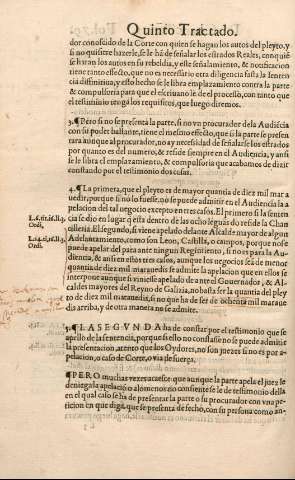 Quinto Tractado.
dor conoscido de la Corte con quien se hagan los autos del pleyto, y
si no quisiere hazerle, se le ha de señalar los estrados Reales, con quiē
se haran los autos en su rebeldia, y este señalamiento, & notificacion
tiene tanto effecto, que no es necessario otra diligencia hasta la senten
cia diffinitiua, y esto hecho se le libra emplazamiento contra la parte
& compulsoria para que el escriuano le de el processo, con tanto que
el testimonio trayga los requisitos, que luego diremos.
3.¶ Pero si no se presenta la parte, si no vn procurador de la Audiécia
con su poder bastante, tiene el mesmo effecto, que si la parte se presen
tara aunque al procurador, no ay necessidad de señalarle los estrados
por quanto es del numero, & reside siempre en el Audiencia, y ansi
se le libra el emplazamiento, & compulsoria que acabamos de dezir
constando por el testimonio dos cosas.
4.¶ La primera, que el pleyto es de mayor quantia de diez mil mar a
uedis, porque si no lo fuesse, no se puede admitir en el Audiencia la a
pelacion del tal negocio excepto en tres casos. El primero si la senten
cia se dio en lugar q̄ esta dentro de las ocho leguas do reside la Chan
cilleria. El segundo, si viene apelado delante Alcalde mayor de algun
Adelantamiento, como son Leon, Castilla, o campos, porque no se
puede apelar del para ante ningun Regimiento, si no es para la Au
diencia, & ansi en estos tres casos, aunque los negocios seā de menor
quantia de diez mil marauedis se admite la apelacion que en ellos se
interpone aunque si viniesse apelado de ante el Gouernador, & Al-
caldes mayores del Reyno de Galizia, no basta ser la quantia del pley
to de diez mil marauedis, si no que ha de ser de ochenta mil maraue
dis arriba, y de otra manera no se admite.
5.¶ LA SEGVNDA ha de constar por el testimonio que se
apelo de la sentencia, porque si esto no constasse no se puede admitir
la presentacion, atento que los Oydores, no son juezes si no es por a-
pelacion, o caso de Corte, o via de fuerça.
¶ PERO muchas vezes acaesce: que aunque la parte apela el juez le
deniega la apelaciō, o alomenos no consiente se le de testimonio della
en el qual caso se ha de presentar la parte o su procurador con vna pe-
ticion en que diga, que se presenta de fecho, con su persona como an-